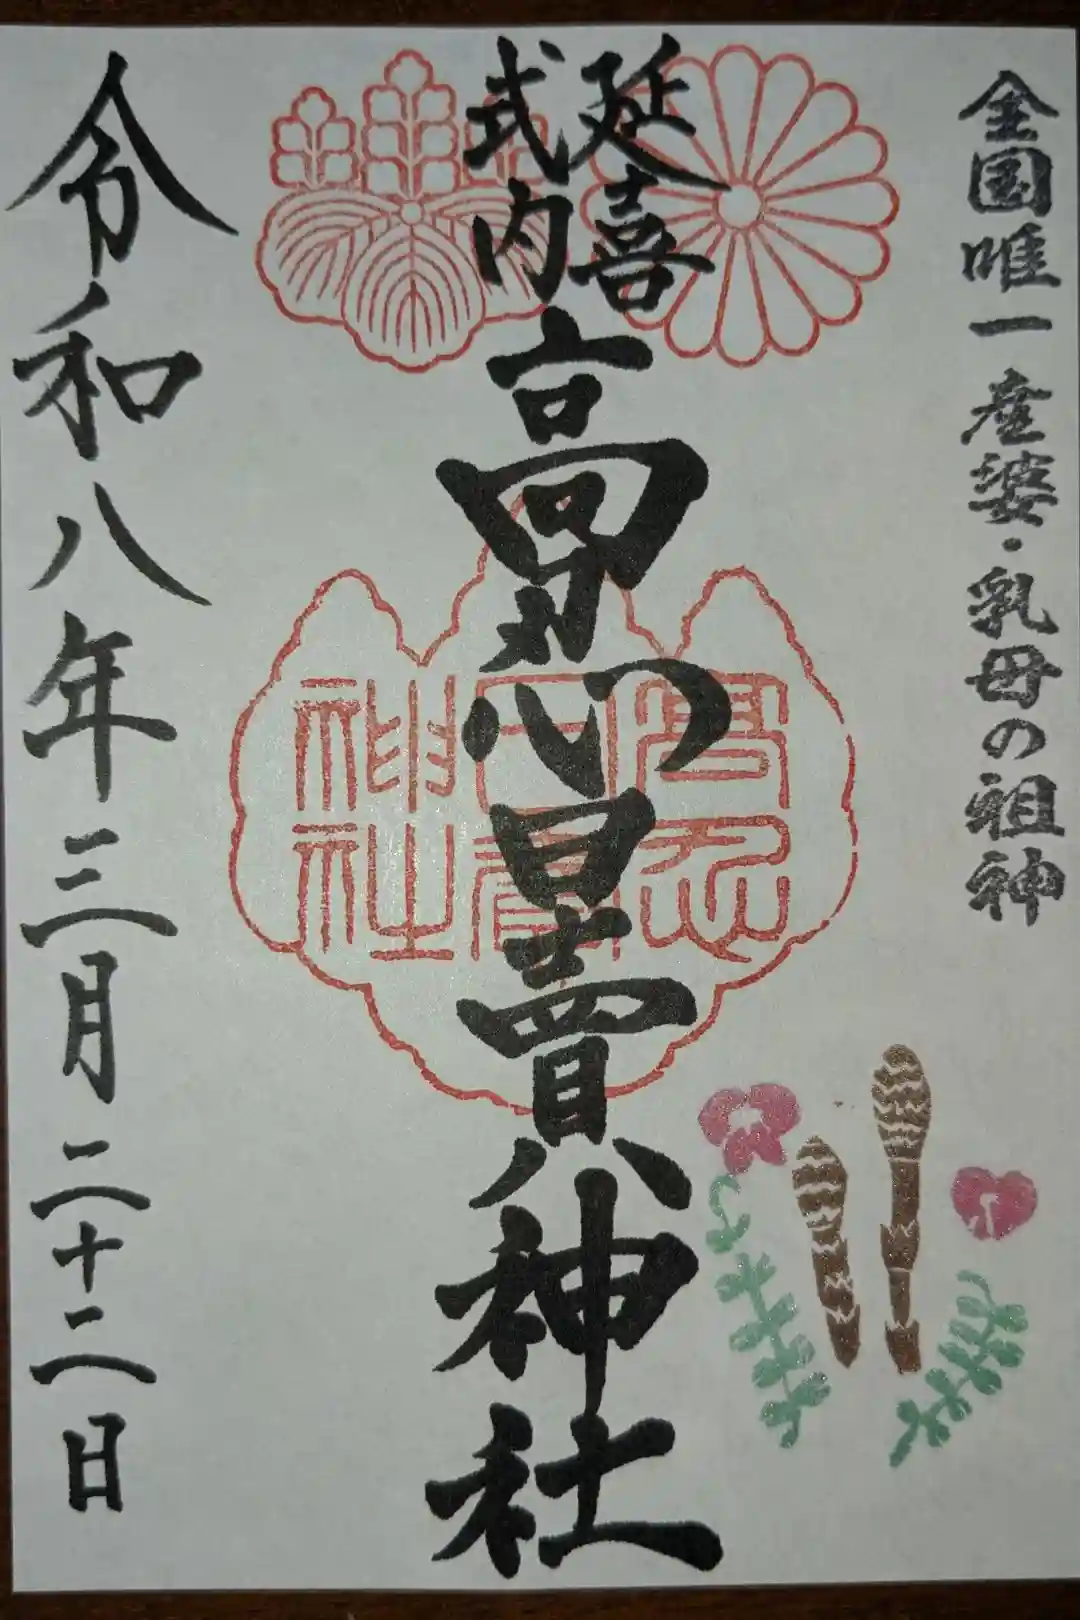 全国唯一 産婆・乳母の祖神
延喜
式内
高忍日賣神社
高忍
日賣
神社
令和八年三月二十二日